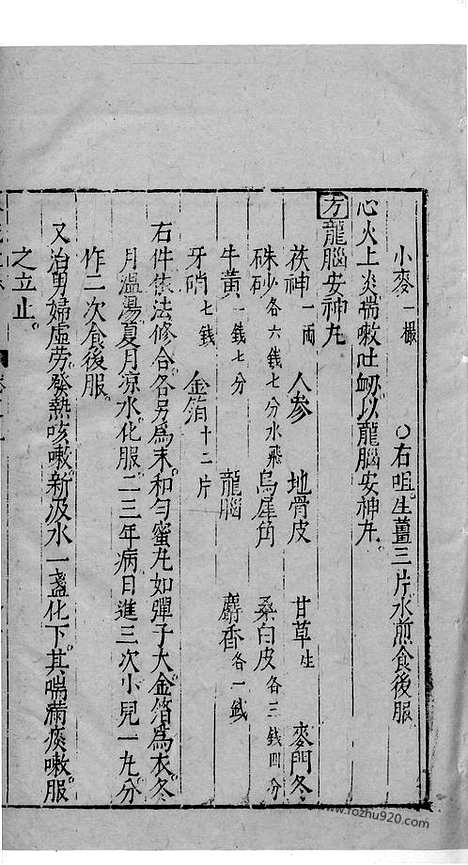 小麥一撮　○右㕮生薑三片水煎食後服
心火上炎喘嗽吐衂以龍腦安神丸
方龍腦安神丸
茯神一兩　人參　地骨皮　甘草生　麥門冬
硃砂各六錢七分水飛　烏犀角　桑白皮各三錢四分
牛黃一錢七分　龍腦　麝香各一錢
牙硝七錢　金箔十二片
右件依法修合各另爲末和勻蜜丸如彈子大金箔爲衣冬
月溫湯夏月凉水化服二三年病日進三次小兒一丸分
作二次食後服
又治男婦虛勞發熱咳嗽新汲水一盞化下其喘滿痰嗽服
之立止
www.fozhu920.com